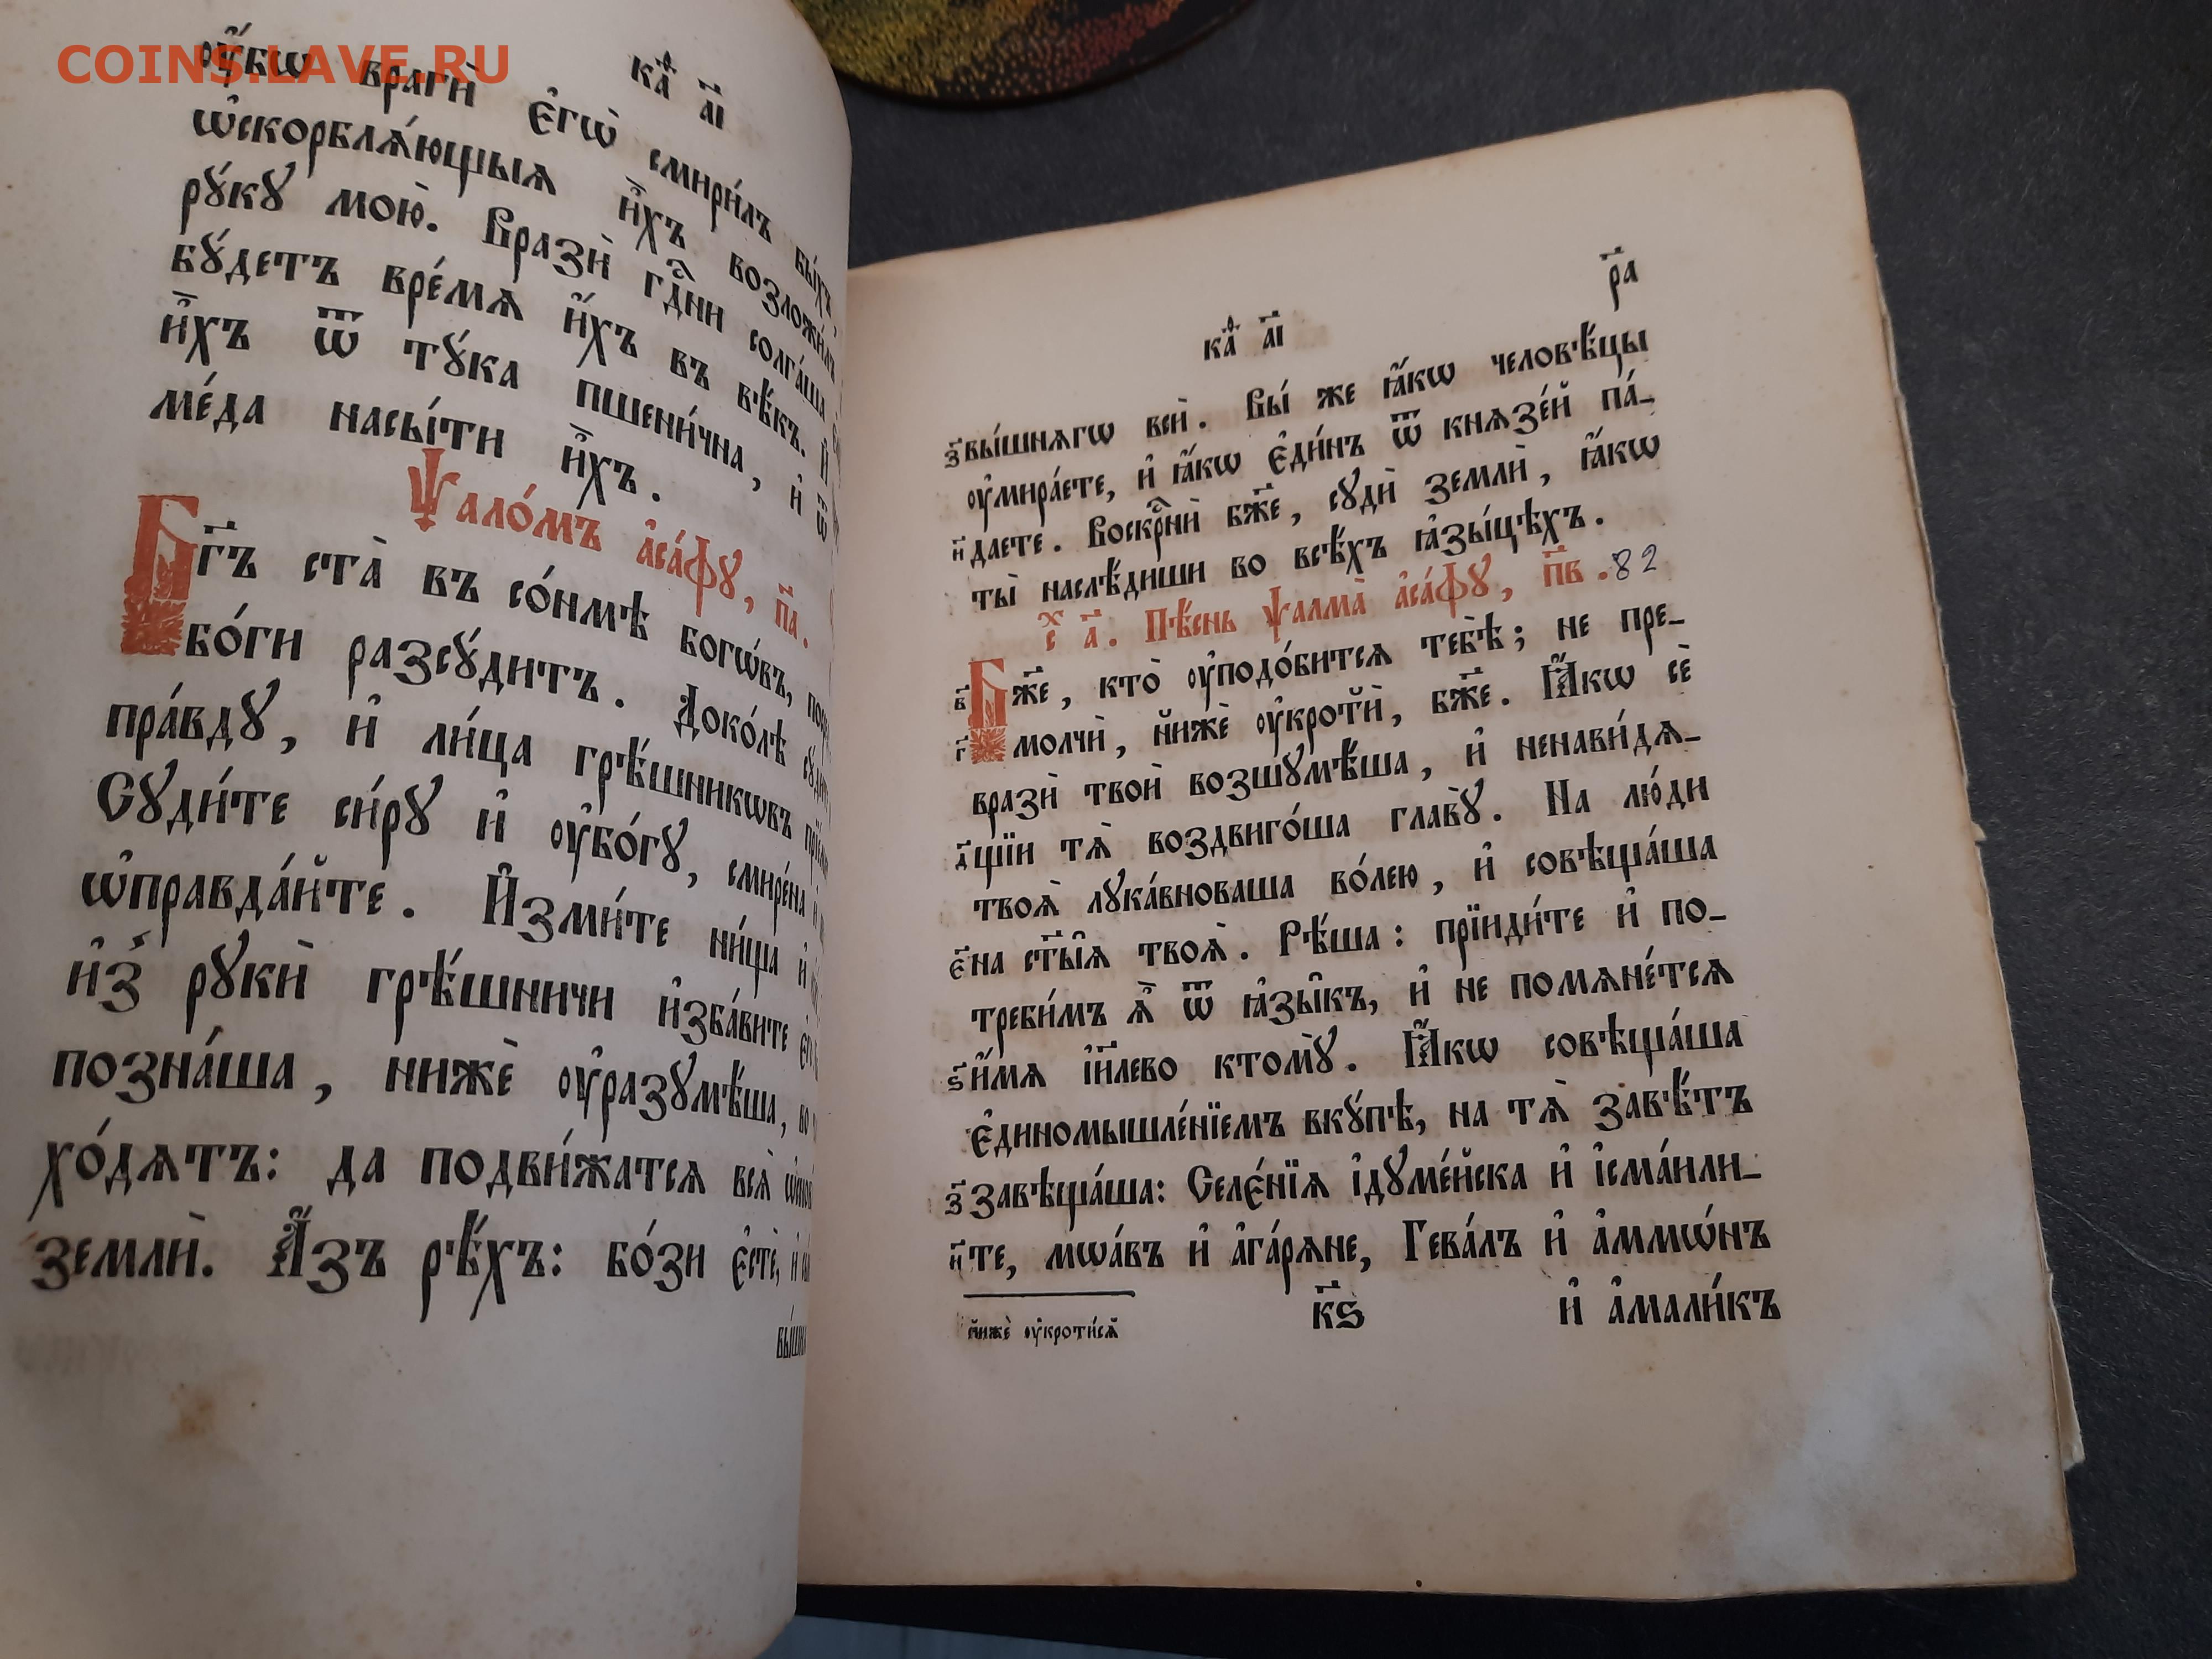 COINS.LAVE.RU
каѳ҃ а҃і
ᲂу҆́бѡ врагѝ є҆гѡ̀ смири́лъ бы́хъ,
ѡ҆скорблѧ́ющыѧ и҆̀хъ возложи́лъ
рꙋ́кꙋ мою̀. Вразѝ гдⷭ҇ни солга́ша
бꙋ́детъ вре́мѧ и҆́хъ въ вѣ́къ. И҆
и҆̀хъ ѿ тꙋ́ка пшени́чна, и҆ ѿ
ме́да насы́ти и҆̀хъ.
Ѱало́мъ а҆са́фꙋ, п҃а.
Бг҃ъ ста̀ въ со́нмѣ богѡ́въ,
бо́ги разсꙋ́дитъ. Доко́лѣ
пра́вдꙋ, и҆ ли́ца грѣ́шникѡвъ
Сꙋди́те си́рꙋ и҆ ᲂу҆бо́гꙋ, смире́на и҆
ѡ҆правда́йте. И҆зми́те ни́ща и҆
и҆з̾ рꙋкѝ грѣ́шничи и҆зба́вите
позна́ша, нижѐ ᲂу҆разꙋмѣ́ша,
хо́дѧтъ: да подви́жатсѧ всѧ̀
землѝ. А҆́зъ рѣ́хъ: бо́зи є҆стѐ, и҆
р҃а
каѳ҃ а҃і
з҃ вы́шнѧгѡ всѝ. Вы́ же ꙗ҆́кѡ человѣ́цы
ᲂу҆мира́ете, и҆ ꙗ҆́кѡ є҆ди́нъ ѿ кнѧзе́й па́-
и҃ даете. Воскрⷭ҇нѝ бж҃е, сꙋдѝ землѝ, ꙗ҆́кѡ
ты̀ наслѣ́диши во всѣ́хъ ꙗ҆зы́цѣхъ.
с҃ х а҃. Пѣ́снь ѱалма̀ а҆са́фꙋ, п҃в. 82
в҃ Бж҃е, кто̀ ᲂу҆подо́битсѧ тебѣ̀; не пре-
г҃ молчѝ, нижѐ ᲂу҆кротѝ, бж҃е. Ꙗ҆́кѡ сѐ
вразѝ твоѝ возшꙋмѣ́ша, и҆ ненави́дѧ-
д҃ щїи тѧ̀ воздвиго́ша главꙋ̀. На лю́ди
твоѧ̀ лꙋка́вноваша во́лею, и҆ совѣща́ша
є҃ на ст҃ы̑ѧ твоѧ̀. Рѣ́ша: прїиди́те и҆ по-
треби́мъ ѧ҆̀ ѿ ꙗ҆зы̑къ, и҆ не помѧне́тсѧ
ѕ҃ и҆́мѧ і҆и҃лево ктомꙋ̀. Ꙗ҆́кѡ совѣща́ша
є҆диномышле́нїемъ вкꙋ́пѣ, на тѧ̀ завѣ́тъ
з҃ завѣща́ша: Селє́нїѧ і҆дꙋме́йска и҆ і҆сма́или-
и҃ те, мѡа́въ и҆ а҆га́рѧне, Гева́лъ и҆ а҆ммѡ́нъ
нижѐ ᲂу҆кроти́сѧ к҃ѕ и҆ а҆мали́къ